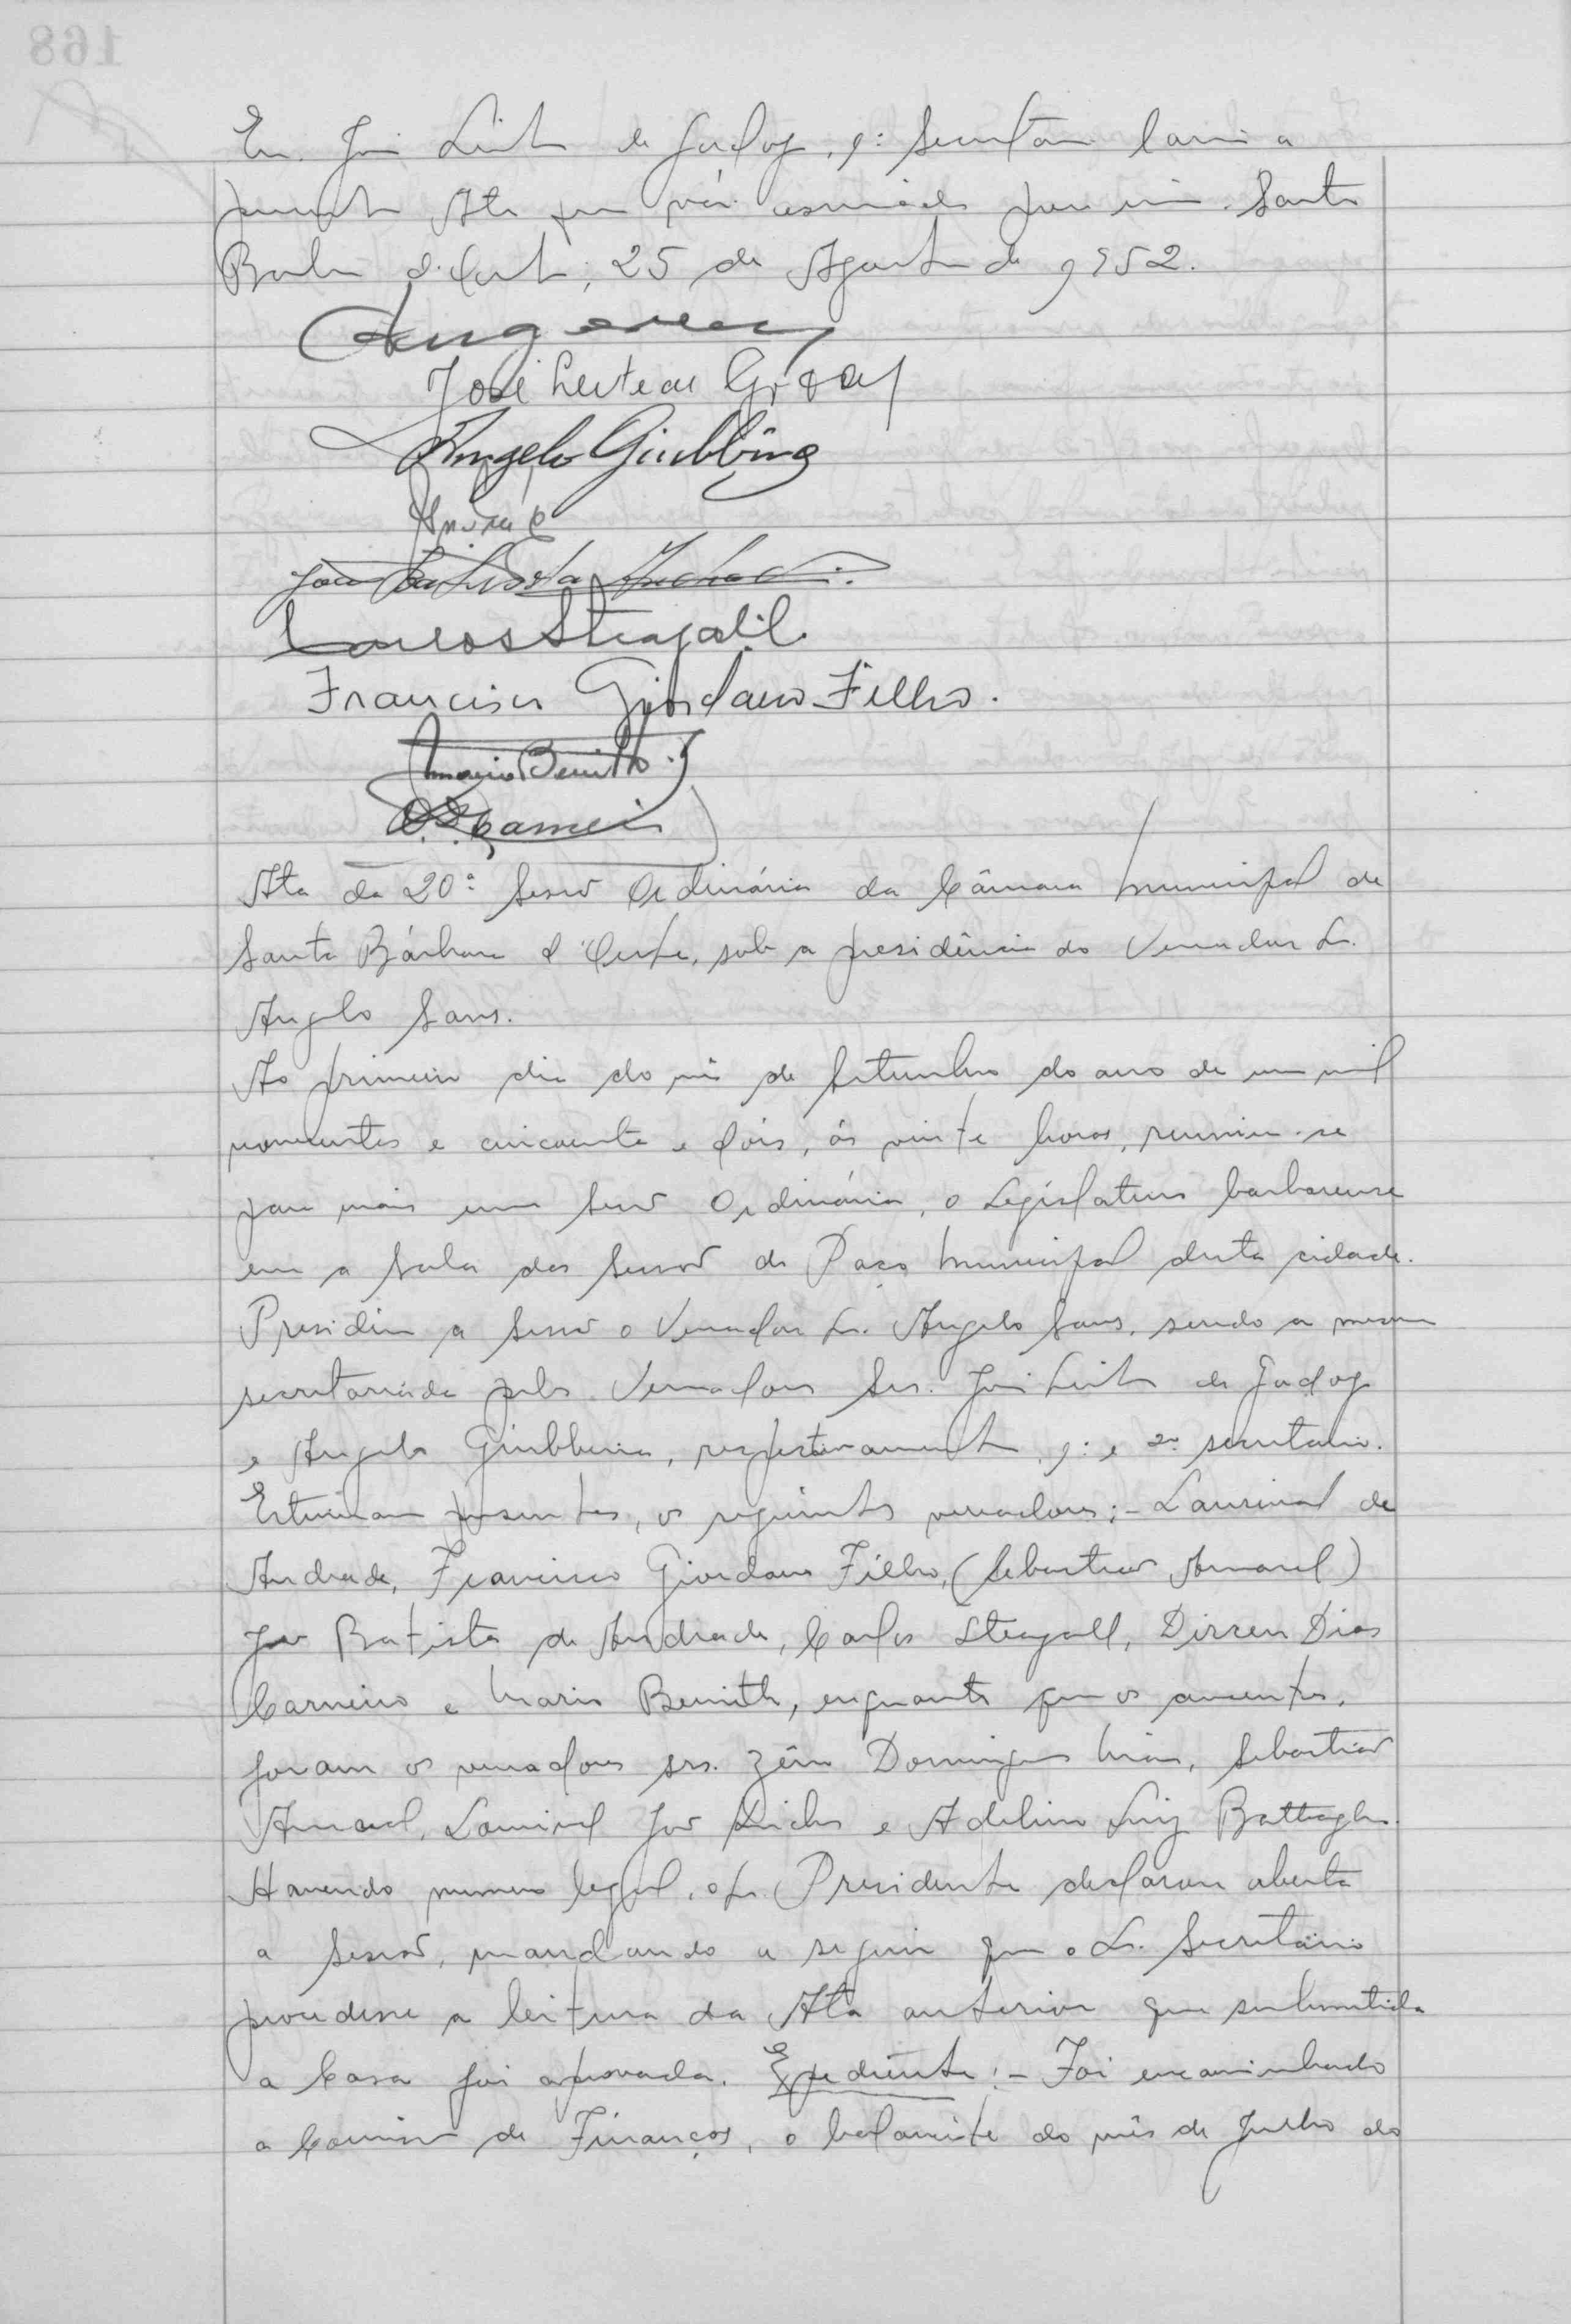 Eu José Leite de Godoy, 1º Secretário lavrei a
presente Ata que vai assinada por mim. Santa
Barbara d'Oeste, 25 de Agosto de 1952.
José Leite de Godoy
Angelo Giubbina
João Batista Andrade
Carlos Steagall.
Francisco Giordano Filho.
Mario Benith
D. D. Carneiro
Ata da 20ª Sessão Ordinária da Câmara Municipal de
Santa Bárbara d'Oeste, sob a presidência do Vereador Sr.
Angelo Sans.
Ao primeiro dia do mês de Setembro do ano de um mil
novecentos e cincoenta e dois, ás vinte horas, reuniu-se
para mais uma Sessão Ordinária, o Legislativo barbarense
em a Sala das Sessões do Paço Municipal desta cidade.
Presidiu a Sessão o Vereador Sr. Angelo Sans, sendo a mesma
secretariada pelos Vereadores Srs. José Leite de Godoy
e Angelo Giubbina, respectivamente 1º e 2º secretario.
Estiveram presentes, os seguintes vereadores:- Laurival de
Andrade, Francisco Giordano Filho, (Sebastião Amaral)
João Batista de Andrade, Carlos Steagall, Dirceu Dias
Carneiro e Mario Benith, enquanto que os ausentes,
foram os vereadores srs. Zêno Domingues Maia, Sebastião
Amaral, Lourival João e Adelino Luiz Battagli.
Havendo numero legal, o Sr. Presidente declarou aberta
a Sessão, mandando a seguir que o Sr. Secretário
procedesse a leitura da Ata anterior que submetida
a Casa foi aprovada. Expediente:- Foi encaminhado
a Comissão de Finanças, o balancete do mês de Julho do